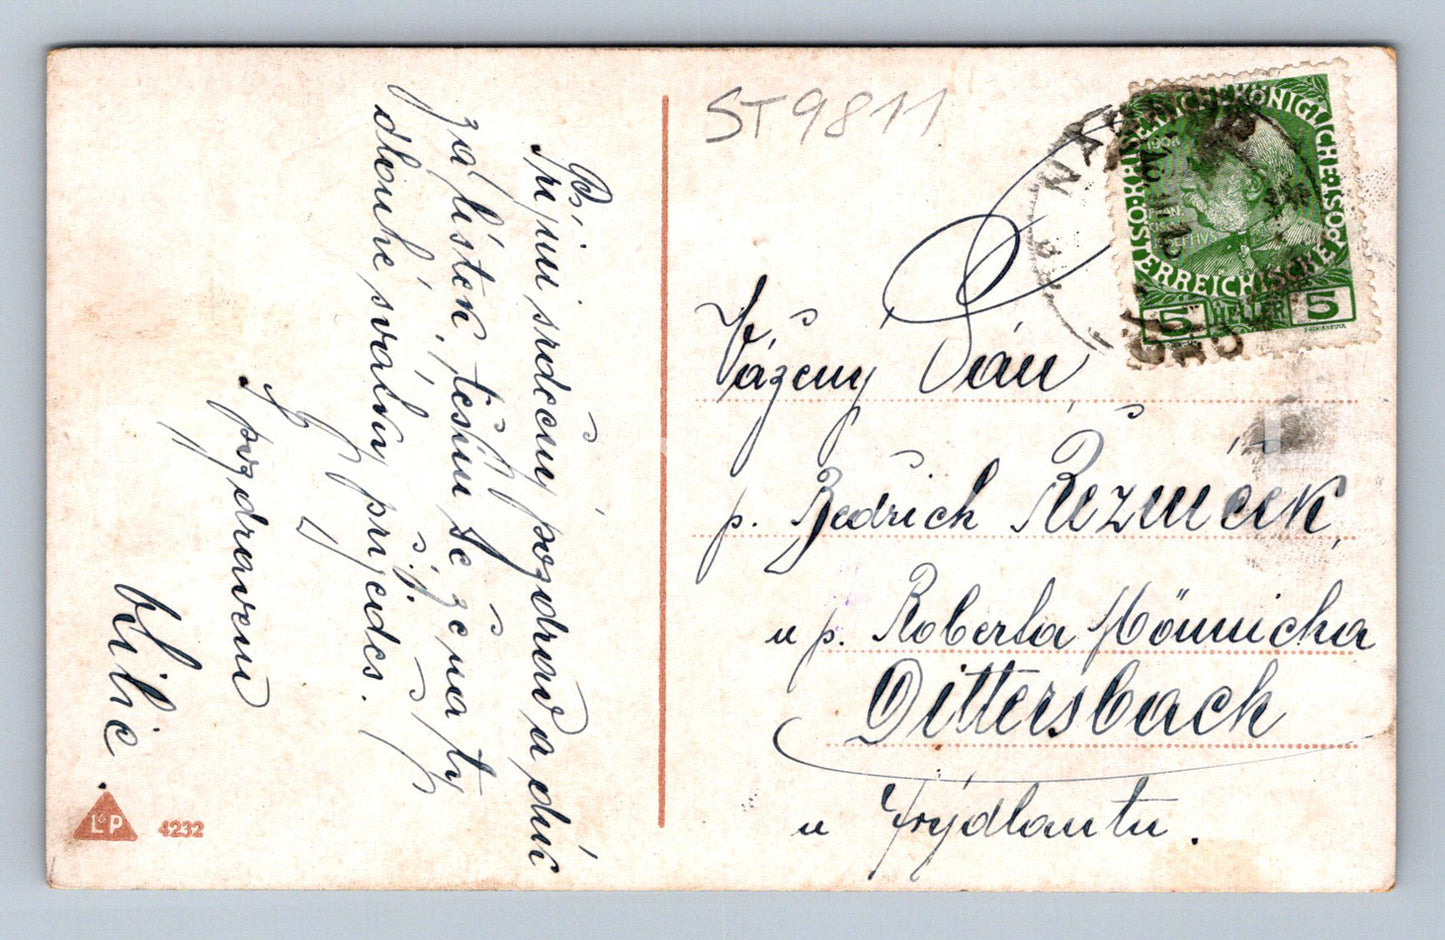 Přijmi srdečný pozdrav a dík
za lístek, těším se že na ty
dlouhé svátky přijedes.
S pozdravem
ST9811
NA
K.K. 
KÖNIGLICHE POST
ÖSTERREICHISCHE
1908
5 HELLER 5
Vážený Pán,
p. Bedřich Řezníček,
u p. Roberta Hönnicha
Dittersbach
u Frýdlantu.
L&P 4232